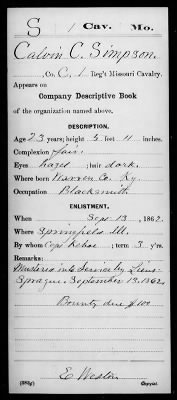 S 1 Cav. Mo.
Calvin C. Simpson.
, Co. C, 1 Reg't Missouri Cavalry.
Appears on
Company Descriptive Book
of the organization named above.
DESCRIPTION.
Age 23 years; height 5 feet 11 inches.
Complexion fair.
Eyes hazel; hair dark.
Where born Warren Co. Ky.
Occupation Blacksmith
ENLISTMENT.
When Sept 13, 1862.
Where Springfield Ill.
By whom Capt Kehoe; term 3 y'rs.
Remarks:
Mustered into Service by Lieut
Sprague, September 13, 1862.
Bounty due $100
E Weston
(383g) Copyist.